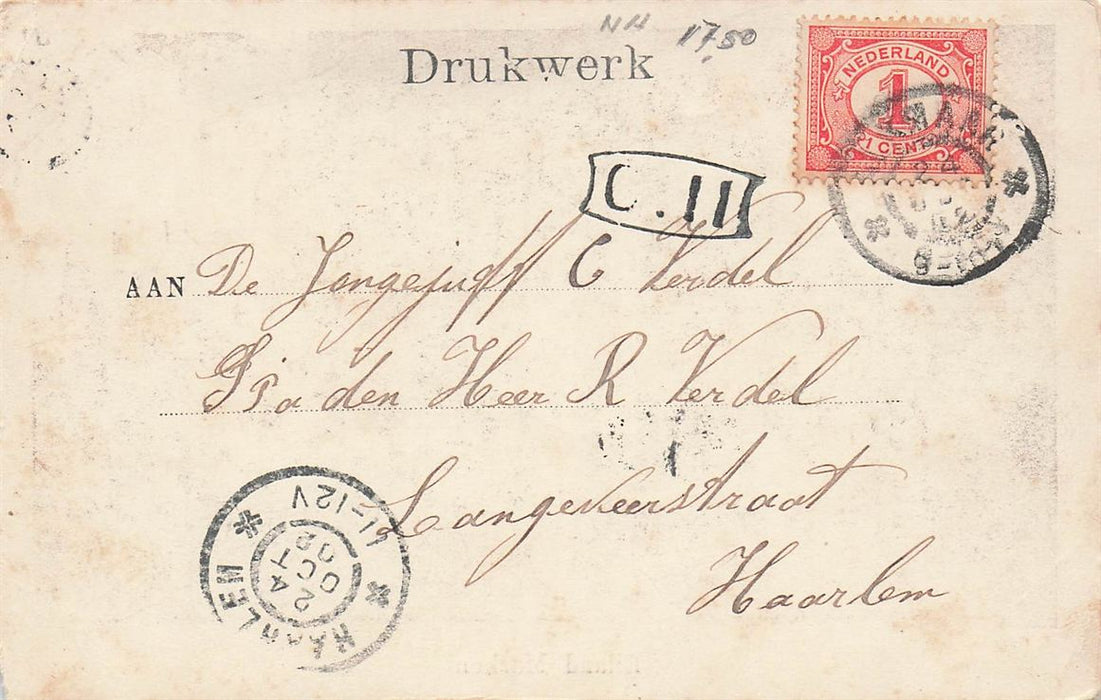 NH 17,50
Drukwerk
NEDERLAND
1
1 CENT
C.11
AAN De Jongejuff C Verdel
p/a den Heer R Verdel
Langeveerstraat
Haarlem
HAARLEM
24 OCT 02
11-12V